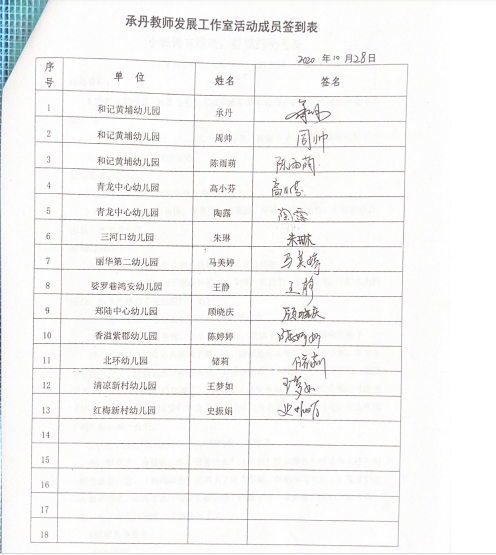 承丹教师发展工作室活动成员签到表
2020 年 10 月 28 日
序号 单 位 姓名 签名
1 和记黄埔幼儿园 承丹 承丹
2 和记黄埔幼儿园 周帅 周帅
3 和记黄埔幼儿园 陈雨萌 陈雨萌
4 青龙中心幼儿园 高小芬 高小芬
5 青龙中心幼儿园 陶露 陶露
6 三河口幼儿园 朱琳 朱琳
7 丽华第二幼儿园 马美婷 马美婷
8 娑罗巷鸿安幼儿园 王静 王静
9 郑陆中心幼儿园 顾晓庆 顾晓庆
10 香溢紫郡幼儿园 陈婷婷 陈婷婷
11 北环幼儿园 储莉 储莉
12 清凉新村幼儿园 王梦如 王梦如
13 红梅新村幼儿园 史振娟 史振娟
14
15
16
17
18